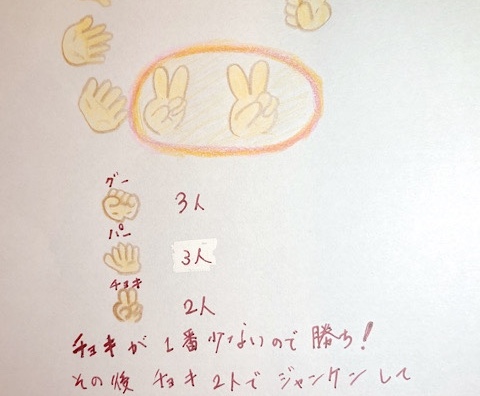 グー
3人
パー
3人
チョキ
2人
チョキが1番少ないので勝ち!
その後チョキ2人でジャンケンして